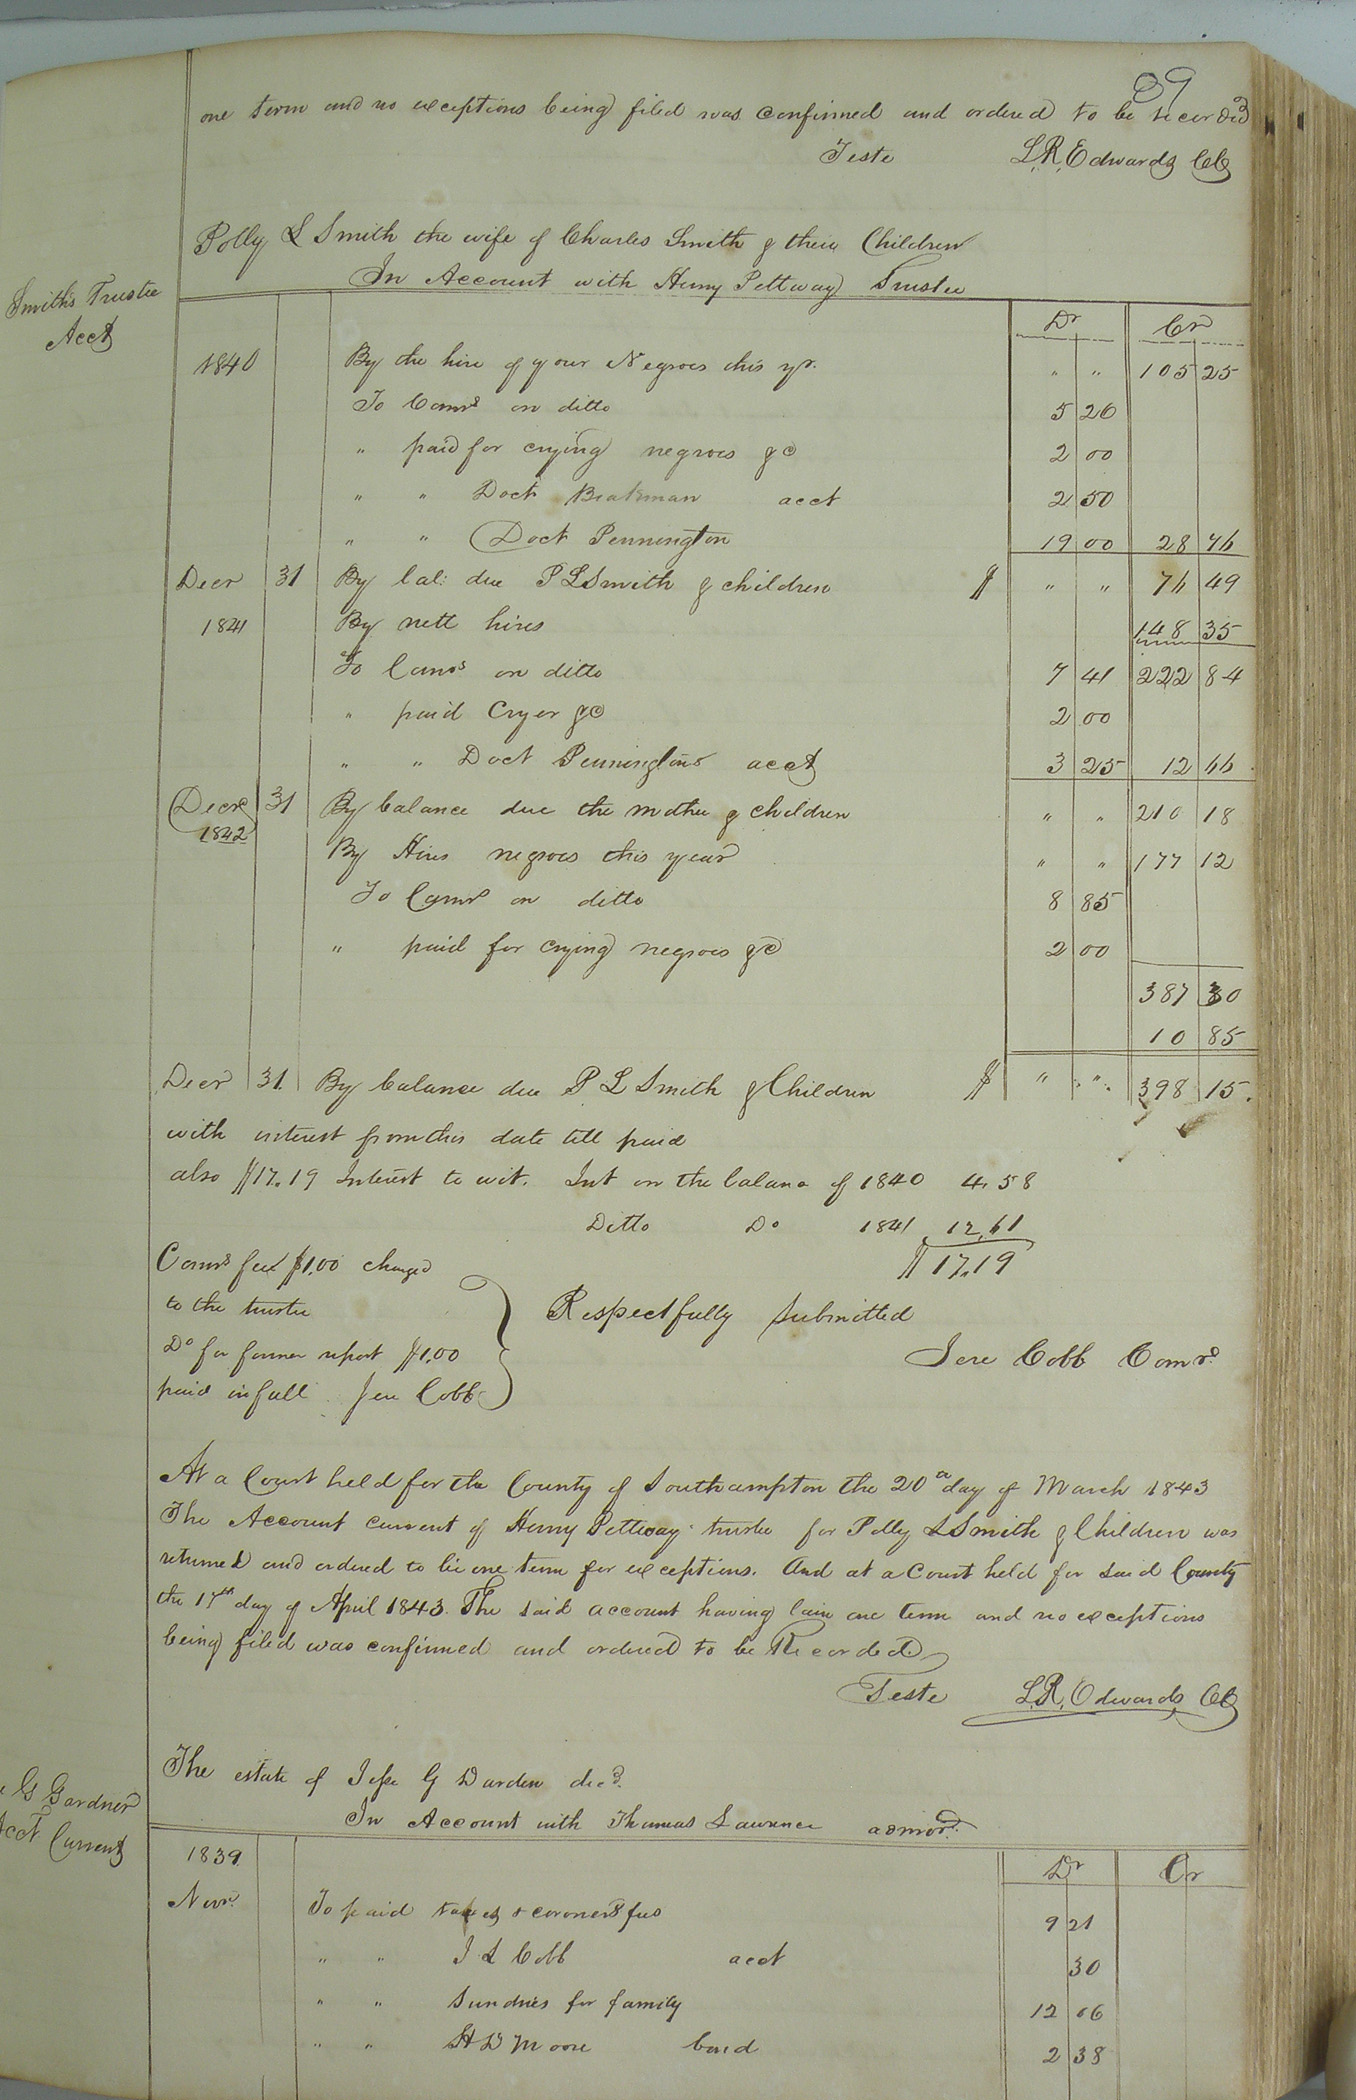 89
one term and no exceptions being filed was confirmed and ordered to be recorded
Teste L. R. Edwards CC
Polly L Smith the wife of Charles Smith & their Children
In Account with Henry Pettway Trustee
Smith's Trustee
Acct
Dr Cr
1840 By the hire of your Negroes this yr. " " 105 25
To Comrs on ditto 5 26
" paid for crying negroes &c 2 00
" " Doct Beatman acct 2 50
" " Doct Pennington 19 00 28 76
Decr 31 By bal: due P L Smith & children $ " " 76 49
1841 By nett hires 148 35
To Comrs on ditto 7 41 222 84
" paid Cryer &c 2 00
" " Doct Penningtons acct 3 25 12 66
Decr 31 By balance due the mother & children " " 210 18
1842
By Hires negroes this year " " 177 12
To Comrs on ditto 8 85
" paid for crying negroes &c 2 00
387 30
10 85
Decr 31. By balance due P L Smith & Children $ " " 398 15.
with interest from this date till paid
also $17.19 Interest to wit. Int on the balance of 1840 4.58
Ditto Do 1841 12.61
$17.19
Comrs fee $1.00 charged
to the trustee
Do for former report $1.00
paid in full Jere Cobb
Respectfully submitted
Jere Cobb Comr.
At a Court held for the County of Southampton the 20th day of March 1843
The Account current of Henry Pettway trustee for Polly L Smith & Children was
returned and ordered to lie one term for exceptions. And at a Court held for said County
the 17th day of April 1843. The said account having lain one term and no exceptions
being filed was confirmed and ordered to be Recorded
Teste L. R. Edwards CC
The estate of Jesse G Darden decd.
In Account with Thomas Lawrence admor.
G Gardner
Acct Current
Dr Cr
1839
Novr. To paid taxes & coroners fees 9 21
" " J L Cobb acct 30
" " Sundries for family 12 06
" " H D Moore bond 2 38